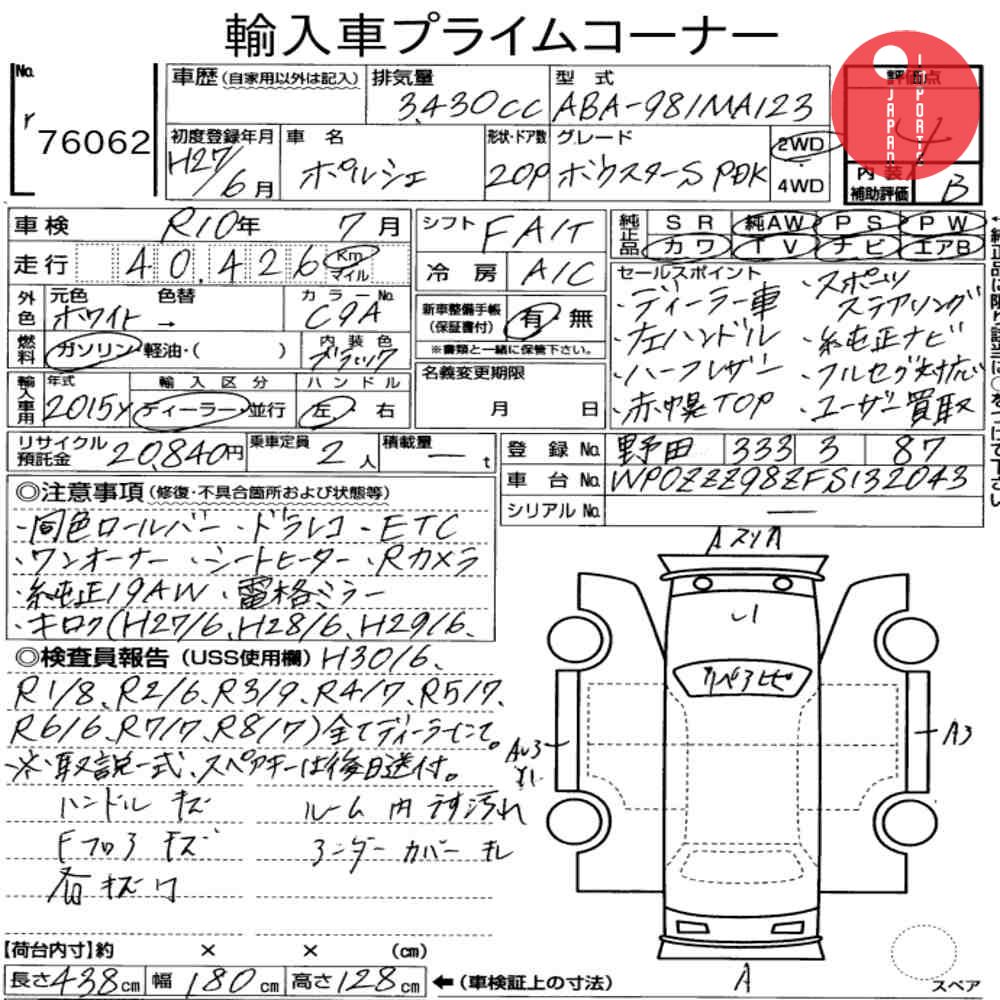 輸入車プライムコーナー
JAPAN IMPORTS
No. r 76062
車歴 (自家用以外は記入) 排気量 3,430cc 型式 ABA-981MA123 評価点 4
初度登録年月 H27/6月 車名 ポルシェ 形状・ドア数 2OP グレード ボクスターS PDK 2WD 4WD
内装補助評価 B
車検 R10年 7月
走行 40,426 Km マイル
シフト FAIT
冷房 A/C
純正品 SR 純AW PS PW
カワ TV ナビ エアB
外色 元色 ホワイト → 色替 カラーNo. C9A
燃料 ガソリン・軽油・( ) 内装色 ブラック
新車整備手帳(保証書付) 有 無
※書類と一緒に保管下さい。
輸入車用 年式 2015y 輸入区分 ディーラー・並行 ハンドル 左・右
名義変更期限 月 日
セールスポイント
・ディーラー車 ・スポーツステアリング
・左ハンドル ・純正ナビ
・ハーフレザー ・フルセグ対応
・赤幌TOP ・ユーザー買取
リサイクル預託金 20,840円 乗車定員 2人 積載量 ー t
登録No. 野田 333 3 87
車台No. WP0ZZZ98ZFS132043
シリアルNo. ー
◎注意事項 (修復・不具合箇所および状態等)
・同色ロールバー ・ドラレコ ・ETC
・ワンオーナー ・シートヒーター ・Rカメラ
・純正19AW ・電格ミラー
・キロク(H27/6、H28/6、H29/6、
◎検査員報告 (USS使用欄) H30/6、
R1/8、R2/6、R3/9、R4/7、R5/7、
R6/6、R7/7、R8/7)全てディーラーにて。
※取説一式、スペアキーは後日送付。
ハンドル キズ ルーム内 うす汚れ
Fフロア キズ アンダーカバー キレ
Aスリ A
A3
AU3
A
【荷台内寸】約 × × (cm)
長さ 438cm 幅 180cm 高さ 128cm ←(車検証上の寸法)
スペア